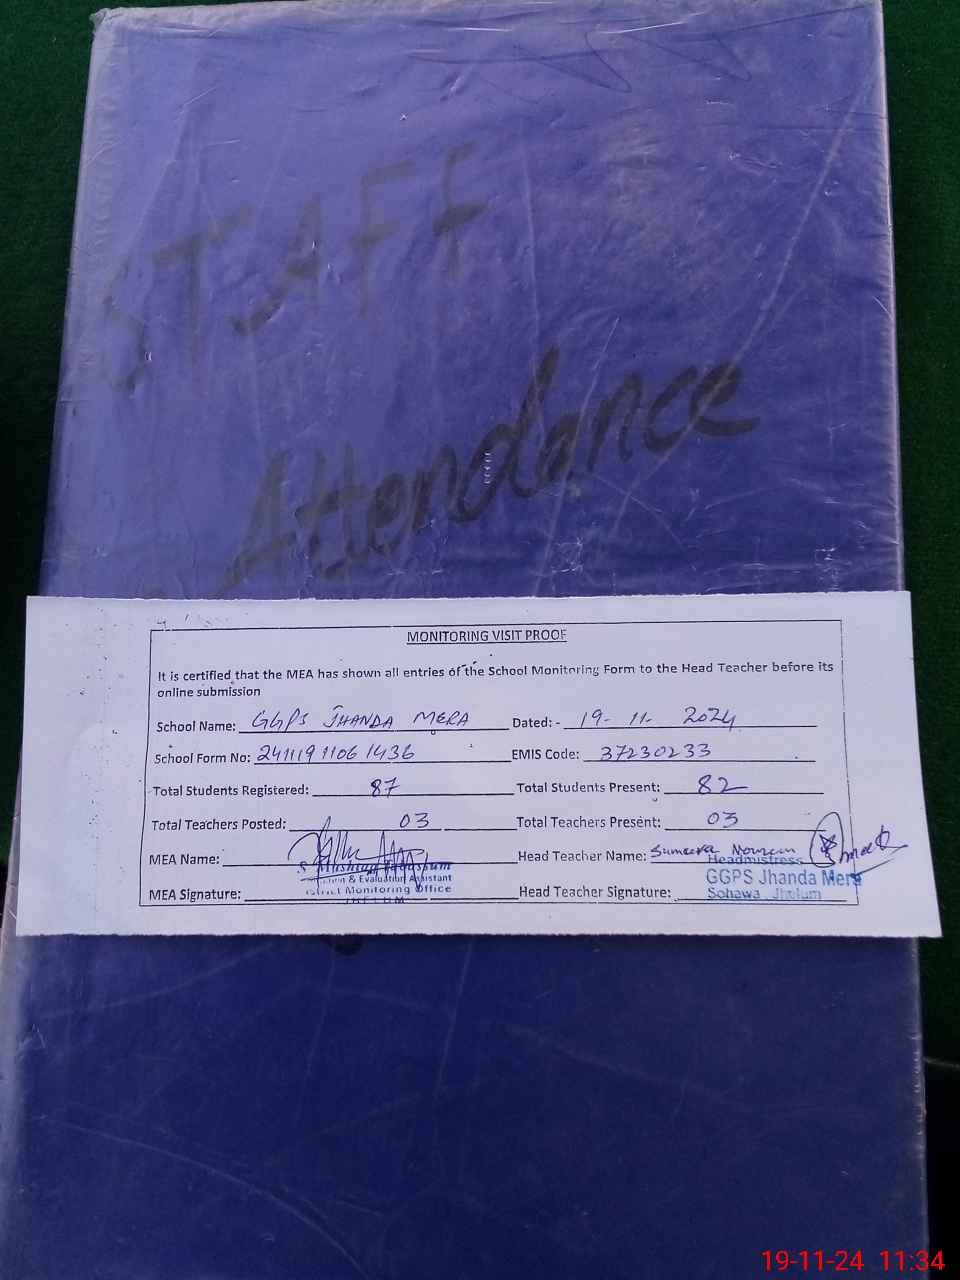 STAFF
Attendance
MONITORING VISIT PROOF
It is certified that the MEA has shown all entries of the School Monitoring Form to the Head Teacher before its
online submission
School Name: GGPS JHANDA MERA Dated: - 19- 11- 2024
School Form No: 241119 1106 1436 EMIS Code: 37230233
Total Students Registered: 87 Total Students Present: 82
Total Teachers Posted: 03 Total Teachers Present: 03
MEA Name: Head Teacher Name: Sumeera
Headmistress
& Evaluation Assistant
GGPS Jhanda Mera
MEA Signature: District Monitoring Office Head Teacher Signature: Sohawa Jhelum
JHELUM
19-11-24 11:34